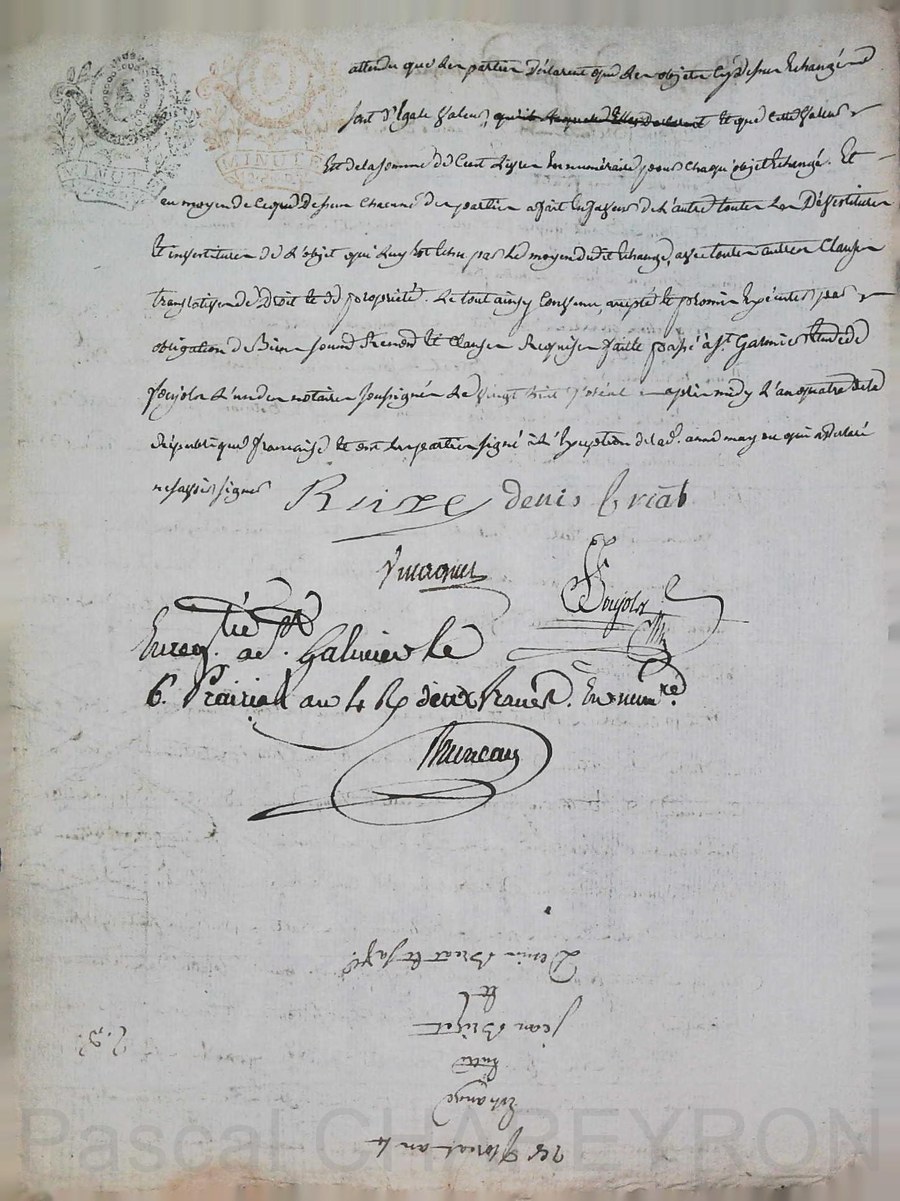 MINUTE
MINUTE
attendu que les parties déclarent que les objets cy dessus Echangés
sont d'Egale Valeur, Et que cette Valeur
Est de la somme de Cent Livres En numéraire pour chaqu'objet Echangé. Et
au moyen de ce que Dessus chacune des parties a fait En faveur de l'autre toutes les Dévestitures
Et investitures de l'objet qui luy Est Echu par le moyen dudit Echange, avec toutes autres Clauses
translatives de Droit Et de propriété. Le tout ainsy Convenu, accepté Et promis Exécuter par
obligation de Biens soumd. Renond. Et Clauses Requises faite passé à St. Galmier Etude de
foujols L'un des notaires soussignés Le vingt huit floréal après midy L'an quatre de la
République française Et ont Les parties signé à L'Exception de lad. qui a déclaré
ne savoir signer
denis briat
Foujols
Enreg.tré a St. Galmier le
6. Prairial an 4 R deux francs. En num.re
28 floreal an 4
Echange
Entre
jean
Et
Denis Briat Et sa
Pascal CHAPEYRON